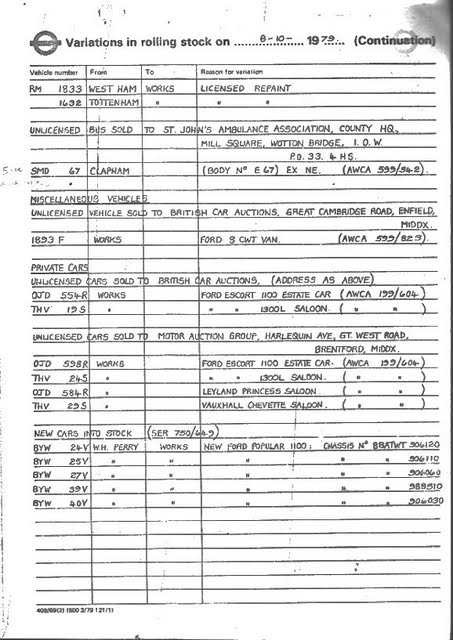 Variations in rolling stock on 8-10- 1979. (Continuation)
Vehicle number From To Reason for variation
RM 1833 WEST HAM WORKS LICENSED REPAINT
1632 TOTTENHAM " " "
UNLICENSED BUS SOLD TO ST. JOHN'S AMBULANCE ASSOCIATION, COUNTY HQ,
MILL SQUARE, WOTTON BRIDGE, I.O.W.
P.O. 33. 4 HS.
SMD 67 CLAPHAM (BODY Nº E67) EX NE. (AWCA 599/942).
MISCELLANEOUS VEHICLES
UNLICENSED VEHICLE SOLD TO BRITISH CAR AUCTIONS, GREAT CAMBRIDGE ROAD, ENFIELD,
MIDDX.
1893 F WORKS FORD 8 CWT VAN. (AWCA 599/829).
PRIVATE CARS
UNLICENSED CARS SOLD TO BRITISH CAR AUCTIONS, (ADDRESS AS ABOVE)
OJD 554R WORKS FORD ESCORT 1100 ESTATE CAR (AWCA 199/604)
THV 19S " " " 1300L SALOON. ( " " )
UNLICENSED CARS SOLD TO MOTOR AUCTION GROUP, HARLEQUIN AVE, GT. WEST ROAD,
BRENTFORD, MIDDX.
OJD 598R WORKS FORD ESCORT 1100 ESTATE CAR. (AWCA 199/604)
THV 24S " " " 1300L SALOON. ( " " )
OJD 584R " LEYLAND PRINCESS SALOON. ( " " )
THV 29S " VAUXHALL CHEVETTE SALOON. ( " " )
NEW CARS INTO STOCK (SER 750/649)
BYW 24V W.H. PERRY WORKS NEW FORD POPULAR 1100: CHASSIS Nº BBATWT 906120
BYW 25V " " " " " 906110
BYW 27V " " " " " 906060
BYW 39V " " " " " 989510
BYW 40V " " " " " 906030